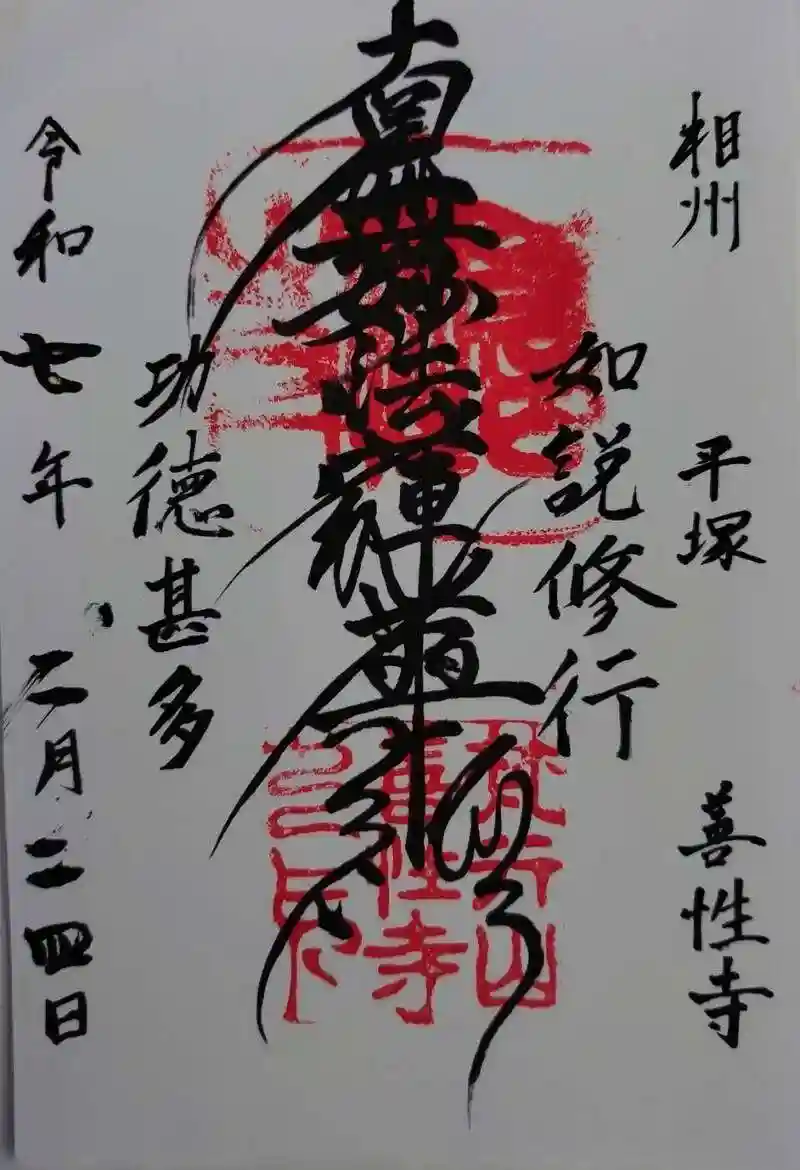 相州 平塚 善性寺
如説修行
南無妙法蓮華経
功徳甚多
令和七年 二月二四日
善性寺